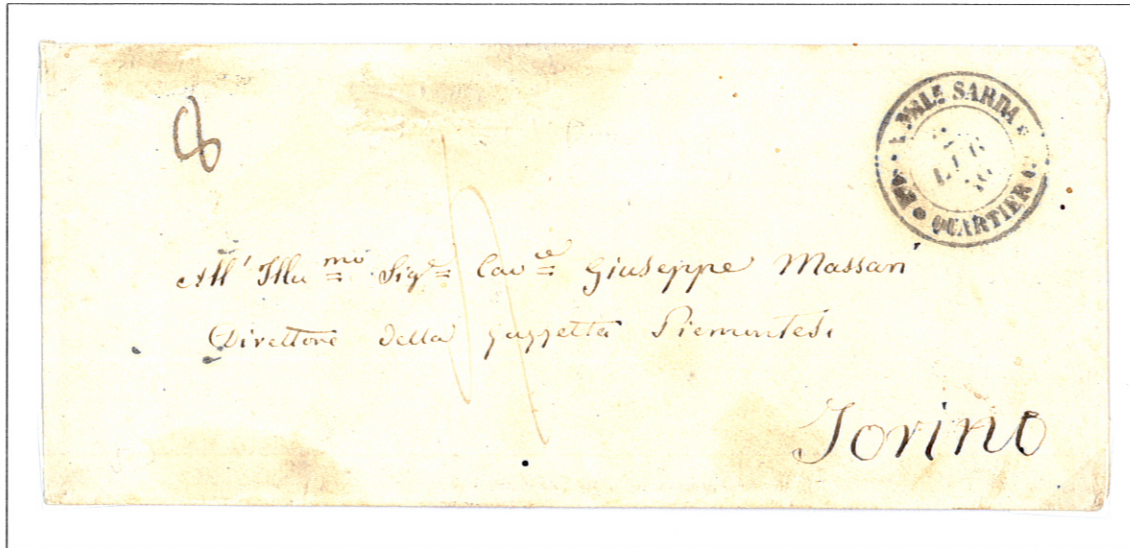 8
SARDA
LUG
QUARTIER
All' Illu.mo Sig.e Cav.e Giuseppe Massari
Direttore della Gazzetta Piemontesi
Torino